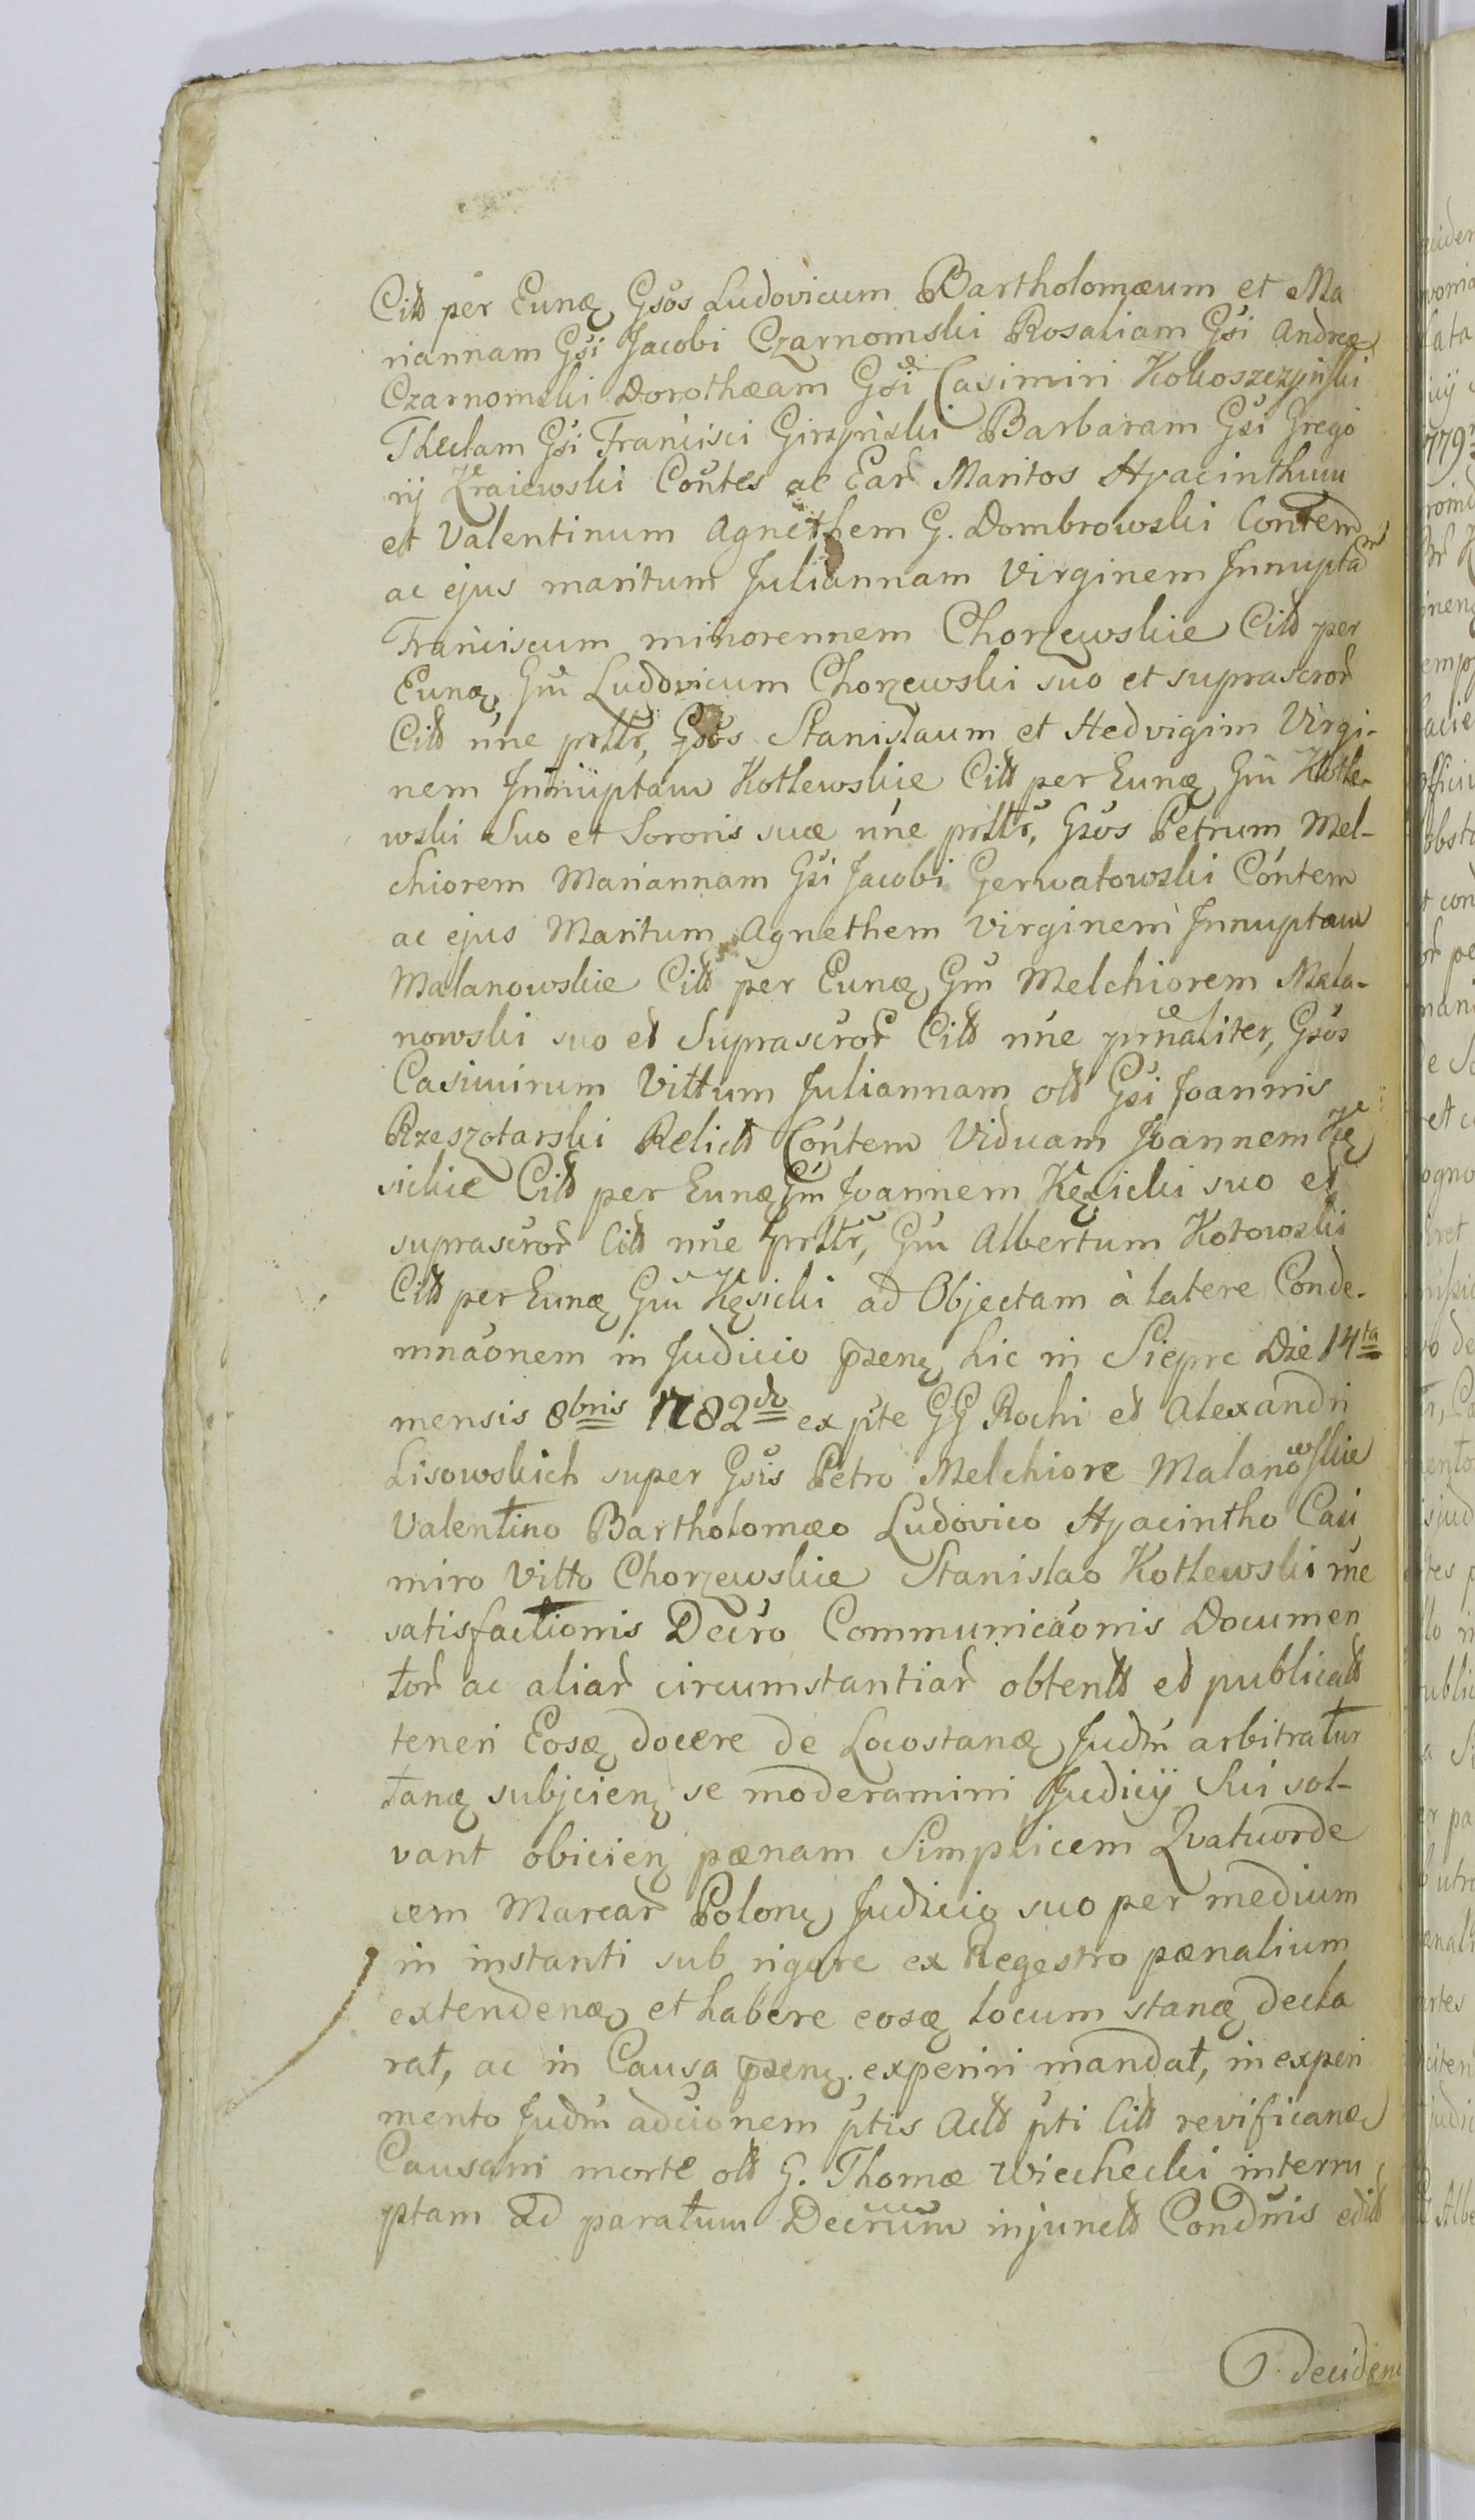 Citt per Eunq Gsos Ludovicum Bartholomæum et Ma
riannam Gsi Jacobi Czarnomski Rosaliam Gsi Andreæ
Czarnomski Dorothæam Gsi Casimiri Kokoszczyński
Theclam Gsi Francisci Girzyński Barbaram Gsi Grego
rij Krajewski Coütes ac Ear̃ Maritos Hyacinthum
et Valentinum Agnethem G. Dombrowski Contem
ac ejus maritum Juliannam Virginem Innuptam
Franciscum minorennem Chorzewskie Citt per
Eunq Gm̃ Ludovicum Chorzewski suo et suprascror̃
Citt nne prltr, Gsos Stanislaum et Hedvigim Virgi-
nem Innuptam Kotlewskie Citt per Eunq Gm̃ Kotle-
wski Suo et Sororis suæ nne prltr, Gsos Petrum Mel-
chiorem Mariannam Gsi Jacobi Gerwatowski Cóntem
ac ejus Maritum Agnethem Virginem Innuptam
Malanowskie Citt per Eunq Gm̃ Melchiorem Mala-
nowski suo et Suprascror̃ Citt nne prnaliter, Gsos
Casimirum Vittum Juliannam olt Gsi Joannis
Rzeszotarski Relictt Cóntem Viduam Joannem Kę
sickie Citt per Eunq Gm̃ Joannem Kęsicki suo et
suprascror̃ Citt nne prltr, Gm̃ Albertum Kotowski
Citt per Eunq Gm̃ Kęsicki ad Objectam à latere Conde-
mnãonem in Judicio pseng hic in Siepre Die 14ta
mensis 8bris 1782do ex pte GG Rochi et Alexandri
Lisowskich super Gsis Petro Melchiore Malanowskie
Valentino Bartholomæo Ludovico Hyacintho Casi
miro Vitto Chorzewskie Stanislao Kotlewski rne
satisfactionis Decro Communicãonis Documen
tor̃ ac aliar̃ circumstantiar̃ obtentt et publicatt
teneri Eosq docere de Locostanq Judm̃ arbitratur
tanq subjcieng se moderamini Judicij Sui sol-
vant obicieng pænam Simplicem Qvatuorde
cem Marcar̃ Polong Judicio suo per medium
in instanti sub rigore ex Regestro pænalium
extendenq et habere eosq locum stanq decla
rat, ac in Causa pseng experiri mandat, in experi
mento Judm̃ adcionem ptis Actt pti Citt revificanq
Causam morte olt G. Thomæ Wiechecki interru
ptam Ad paratum Decrum injunctt Condnis editt